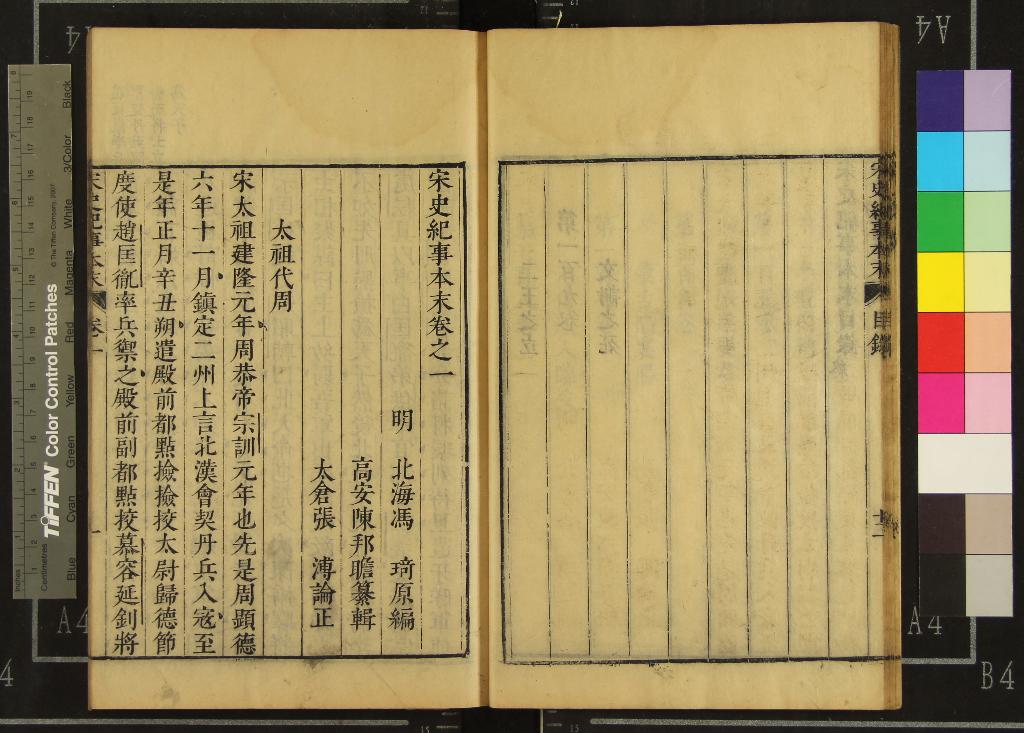 宋史紀事本末
目錄
十二
宋史紀事本末卷之一
明 北海馮 琦原編
高安陳邦瞻纂輯
太倉張 溥論正
太祖代周
宋太祖建隆元年周恭帝宗訓元年也先是周顯德
六年十一月鎮定二州上言北漢會契丹兵入寇至
是年正月辛丑朔遣殿前都㸃撿撿挍太尉歸德節
度使趙匡胤率兵禦之殿前副都㸃挍慕容延釗將
宋史紀事本末
卷一
一
TIFFEN Color Control Patches
© The Tiffen Company, 2007
Inches
Centimetres
Blue
Cyan
Green
Yellow
Red
Magenta
White
3/Color
Black
A4
A4
A4
A4
B4
4